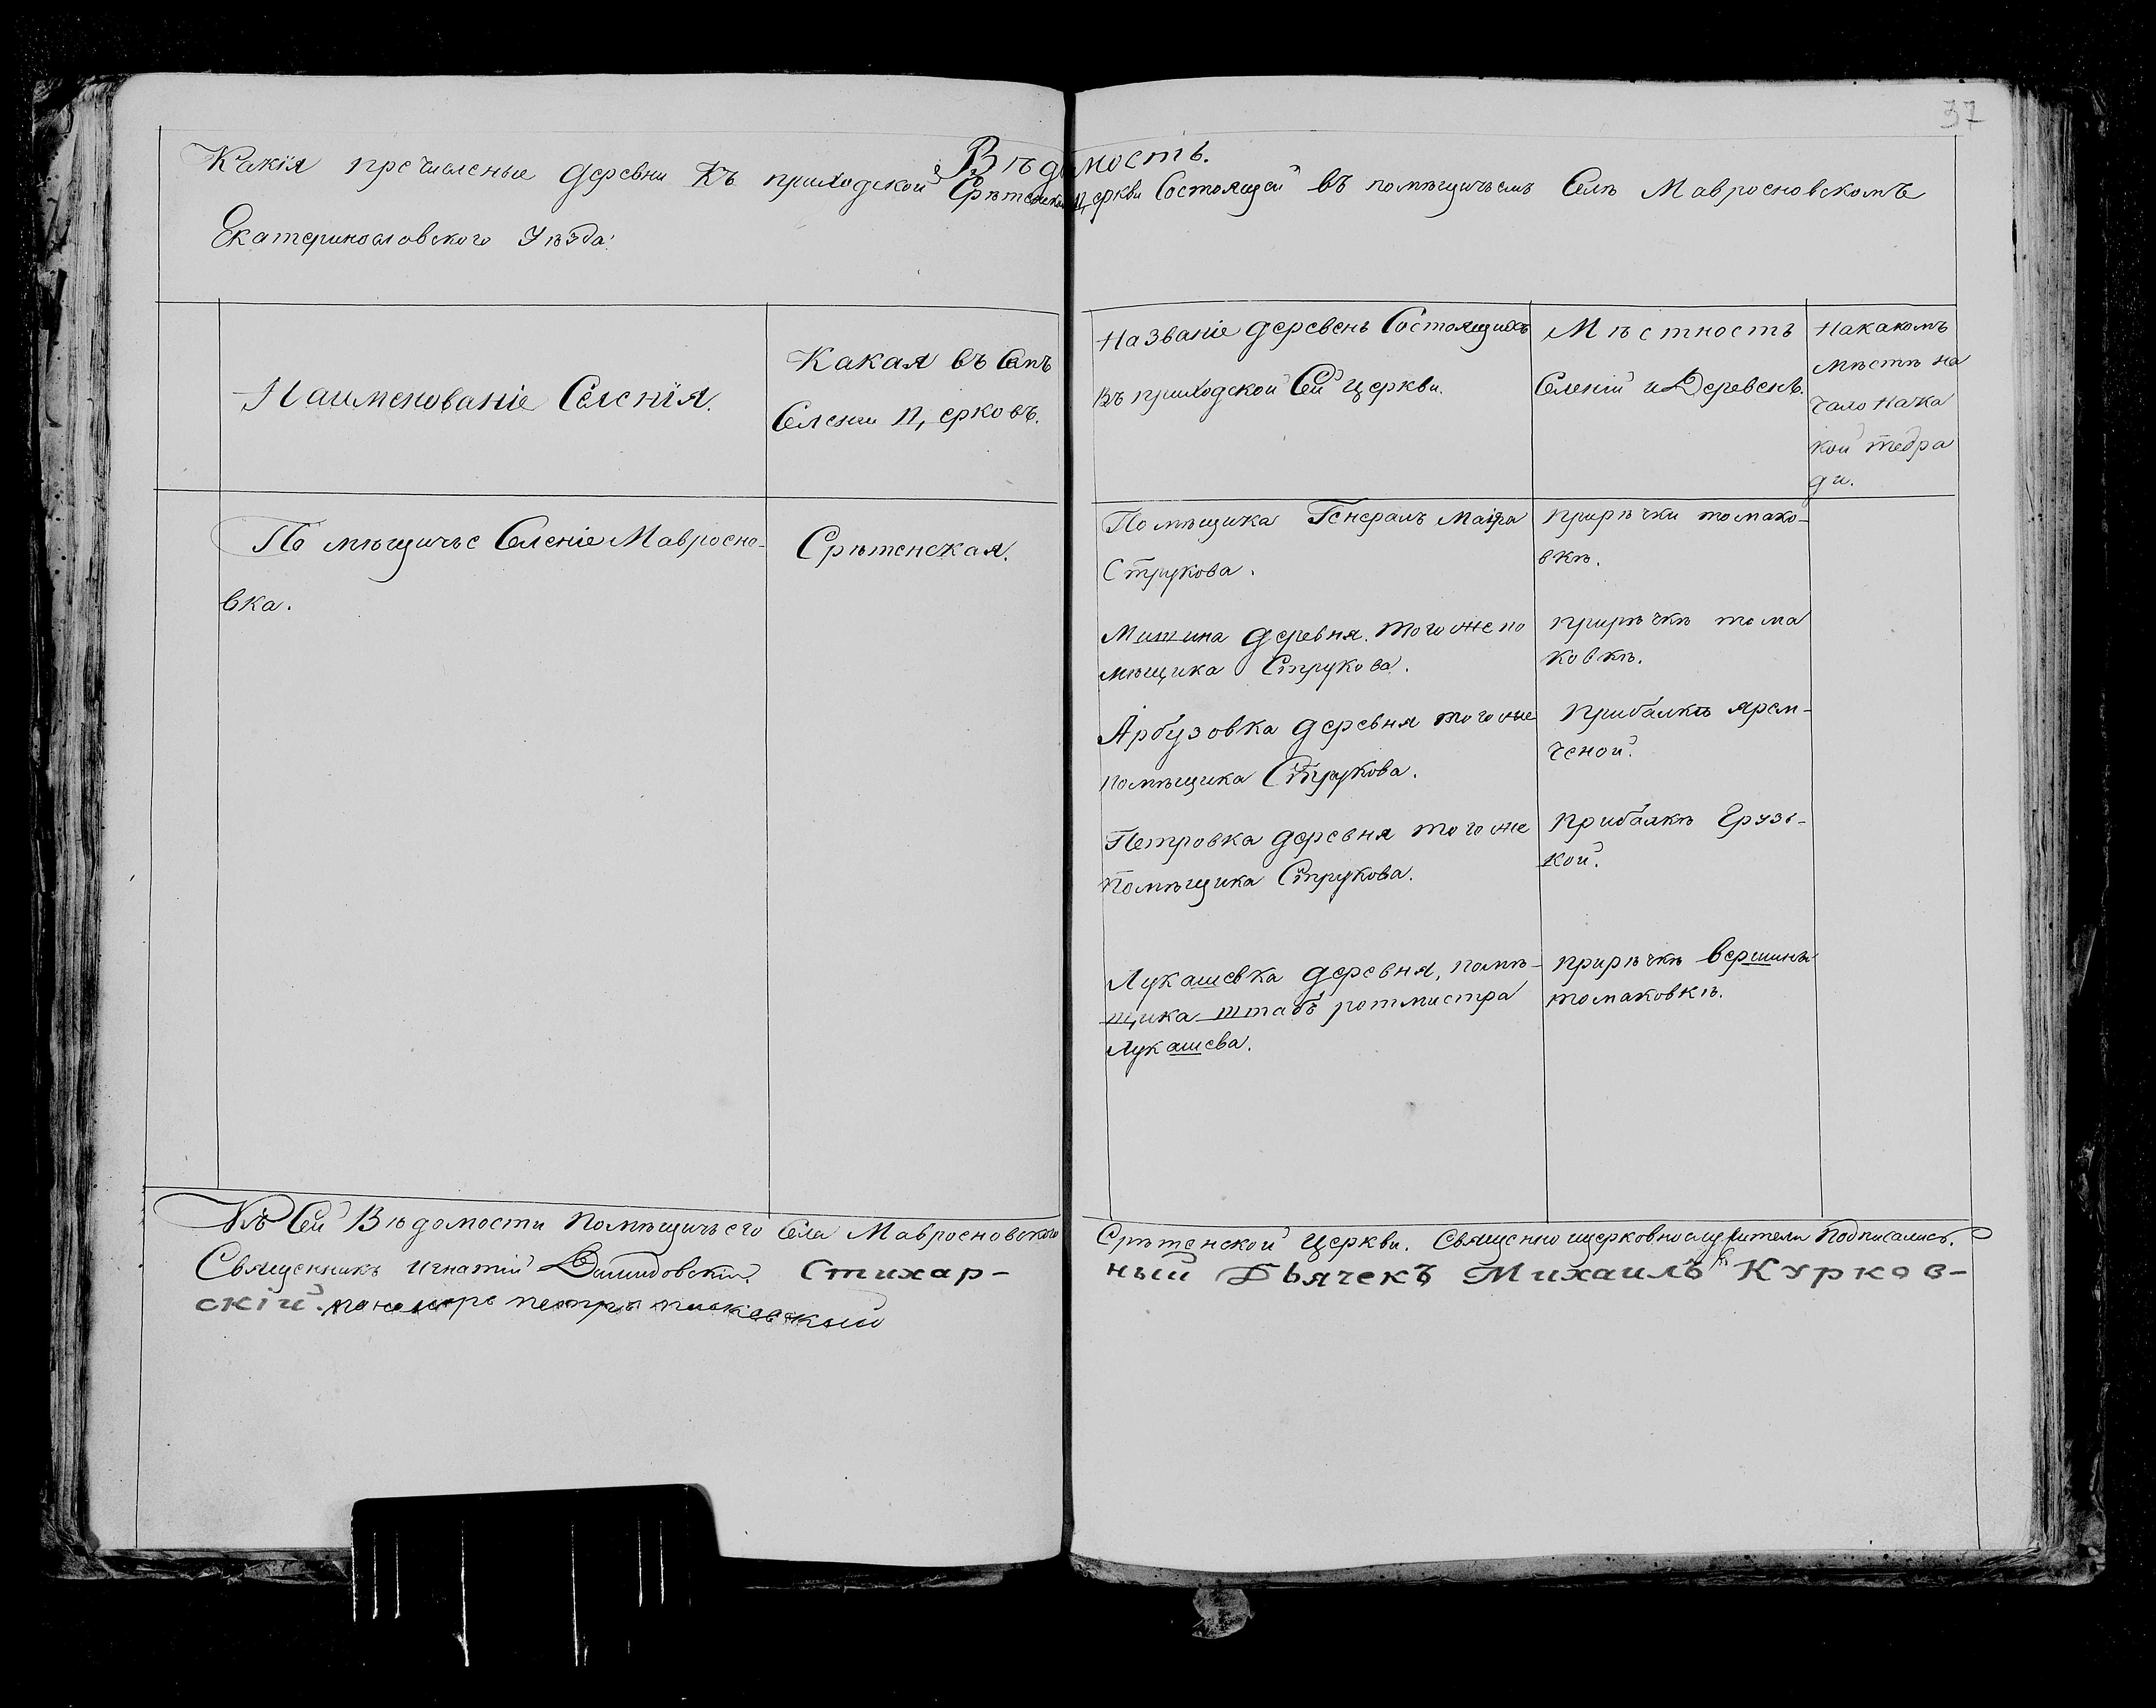 37
Вѣдомость.
Какія пречисленые деревни Къ приходской Срѣтенской Церкви Состоящей въ помѣщичьемъ Селѣ Мавросновскомъ
Екатеринославского Уѣзда:
Наименованіе Селенія.
Какая въ Семъ
Селении Церковъ.
Названіе деревень Состоящихъ
Въ приходской Сей церкви.
Мѣстность
Селений и Деревень.
На какомъ
мѣстѣ на
чало на ка
кой тедра
ди.
Помѣщичье Селеніе Мавросно-
вка.
Срѣтенская.
Помѣщика Генералъ Маіора
Струкова.
при рѣчки томако-
вкѣ.
Митина деревня. того же по
мѣщика Струкова.
при рѣчкѣ тома
ковкѣ.
Арбузовка деревня того же
помѣщика Струкова.
при балкѣ ярем-
ченой.
Петровка деревня того же
помѣщика Струкова.
при балкѣ Грузс-
кой.
Лукашевка деревня, помѣ-
щика штабъ ротмистра
Лукашева.
при рѣчкѣ вершинѣ
томаковкѣ.
Къ Сей Вѣдомости Помѣщичьего Села Мавросновского Срѣтенской Церкви. Священно и церковнослужители Подписались.
Священникъ Игнатій Стихар- ный Дьячекъ Михаилъ Курков-
скій. пономарь петръ